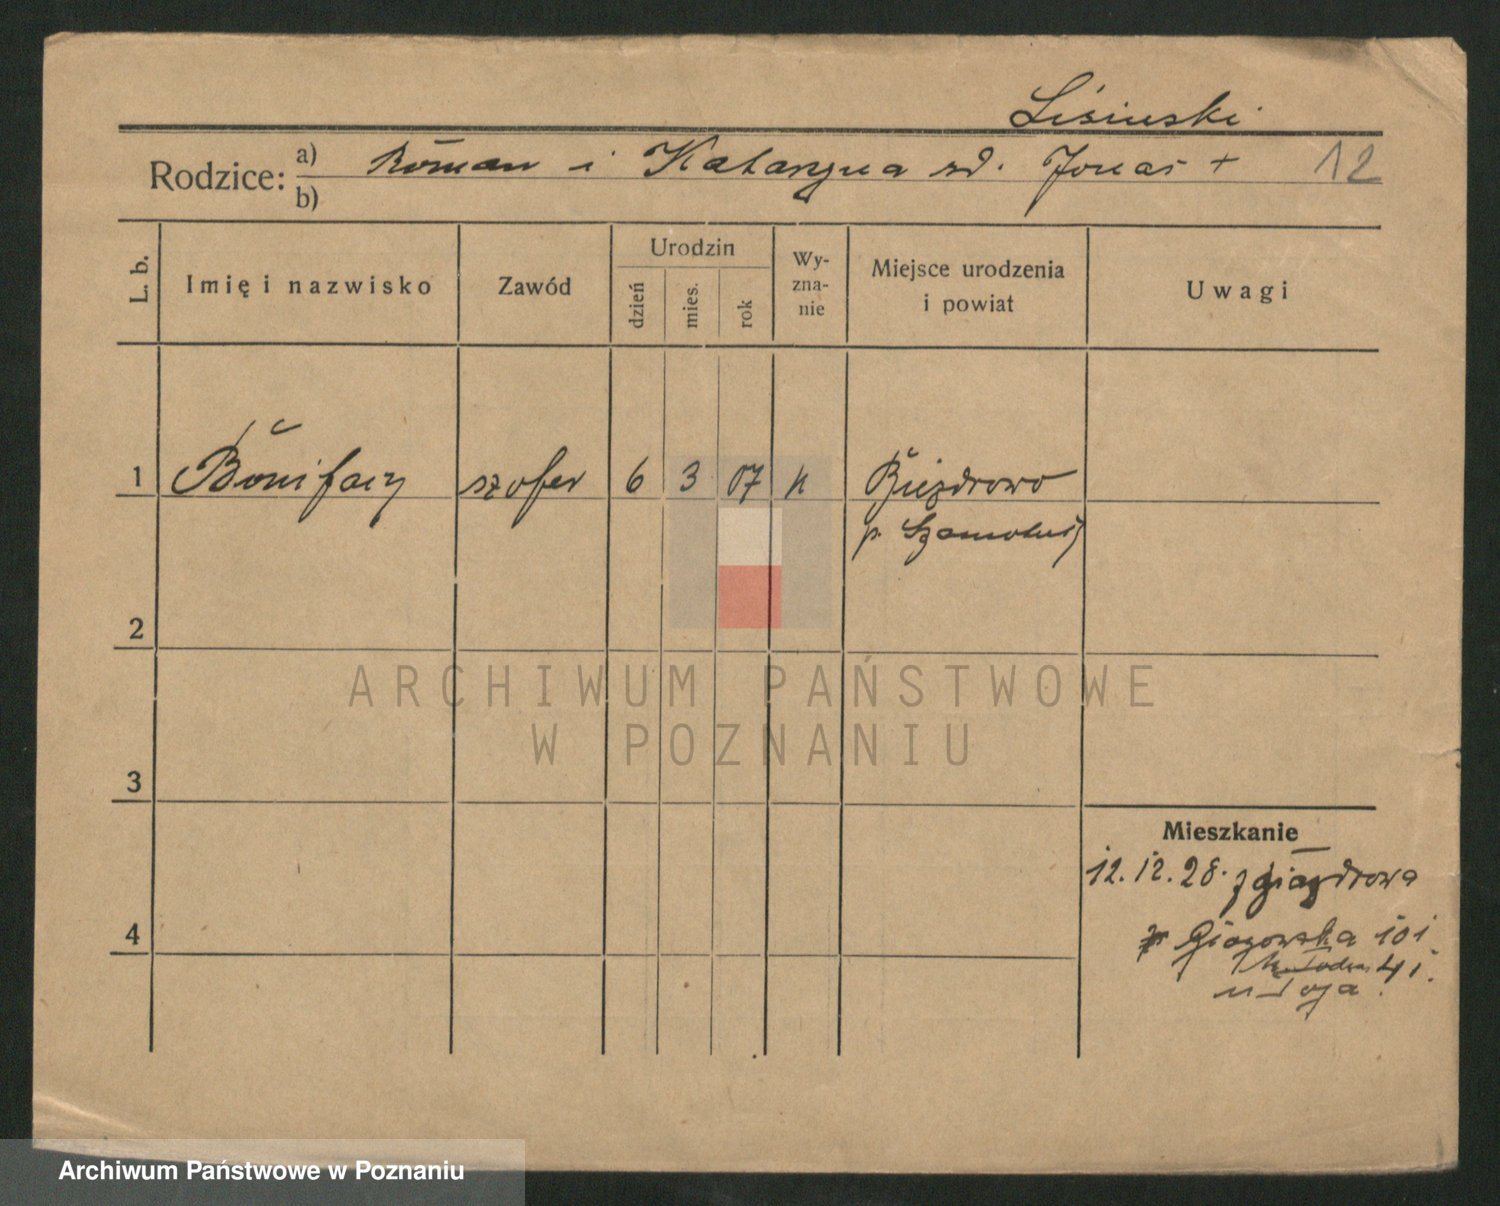 Lisiuski
Rodzice: a) Roman i Katarzyna zd. Jonas + 12
b)
L. b.
Imię i nazwisko
Zawód
Urodzin
dzień
mies.
rok
Wy-
zna-
nie
Miejsce urodzenia
i powiat
Uwagi
1 Bonifacy szofer 6 3 07 k Biezdrowo
p. Szamotuły
2
ARCHIWUM PAŃSTWOWE
W POZNANIU
3
Mieszkanie
12.12.28. z
4
101
41.
Archiwum Państwowe w Poznaniu